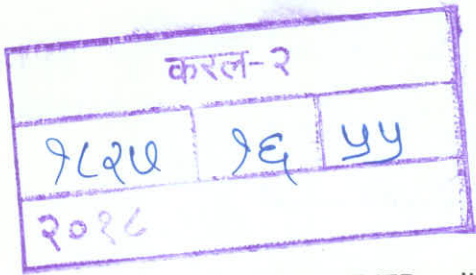 करल-२
१८२५ १६ ५५
२०१८